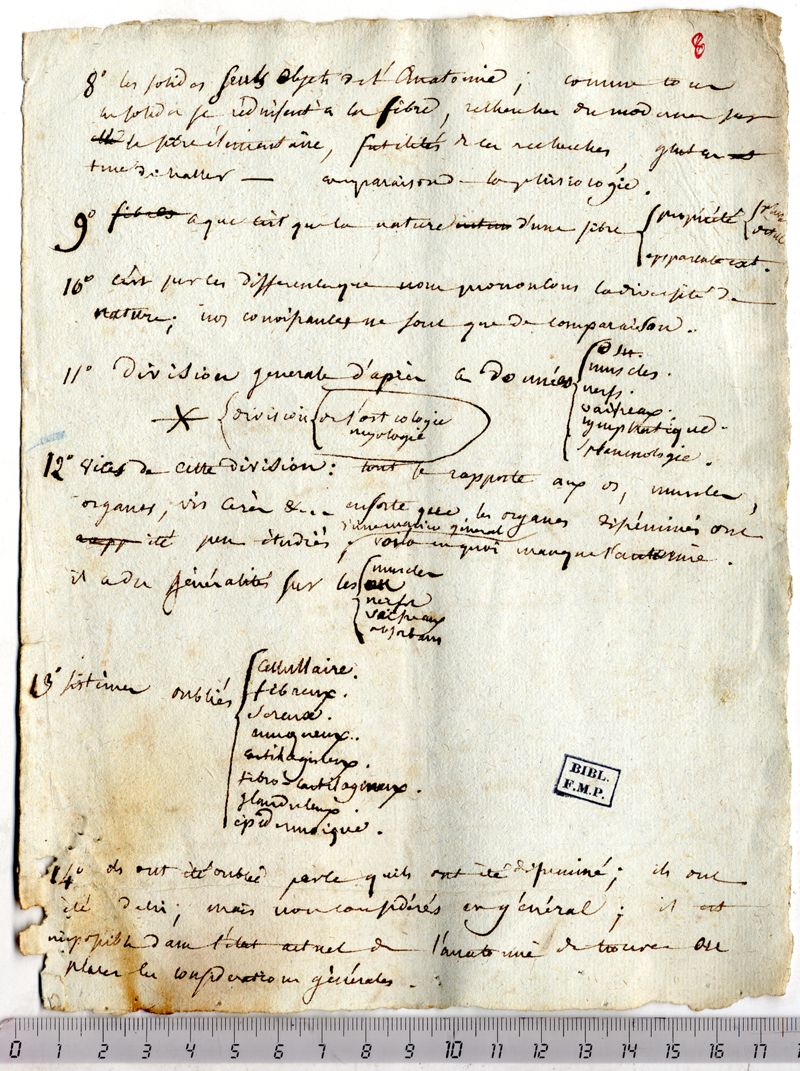 8
8° les solides seuls objets de l'Anatomie ; comme tous
les solides se reduisent à la fibre, recherches des modernes sur
la fibre élémentaire, futilités de ces recherches,
de haller — comparaison — la phisiologie.
9° fibres a que c'est que la nature d'une fibre { propriété {
apparente est.
10° c'est sur les differences que nous prononcons la diversité de
nature ; nos conoissances ne sont que de comparaison.
11° division generale d'après ces données { os.
muscles.
nerfs.
vaisseaux.
lymphatique.
splanchnologie.
division { de l'osteologie
myologie
12° vices de cette division : tout se rapporte aux os, muscles,
organes, viscères &.. ensorte que les organes disséminés ont
été peu étudiés d'une manière général, voila en quoi manque l'anatomie.
il a des généralités sur les { muscles
os
nerfs
vaisseaux
absorbans
13° sistèmes oubliés { cellullaire.
fibreux.
sereux.
muqueux.
cartilagineux.
fibro-cartilagineux.
glanduleux.
épidermoique.
BIBL.
F.M.P.
14° ils ont été oublié parce quils ont été disséminé ; ils ont
été décri ; mais non considérés en général ; il est
impossible dans l'état actuel de l'anatomie de trouver où
placer les considerations générales.
0 1 2 3 4 5 6 7 8 9 10 11 12 13 14 15 16 17